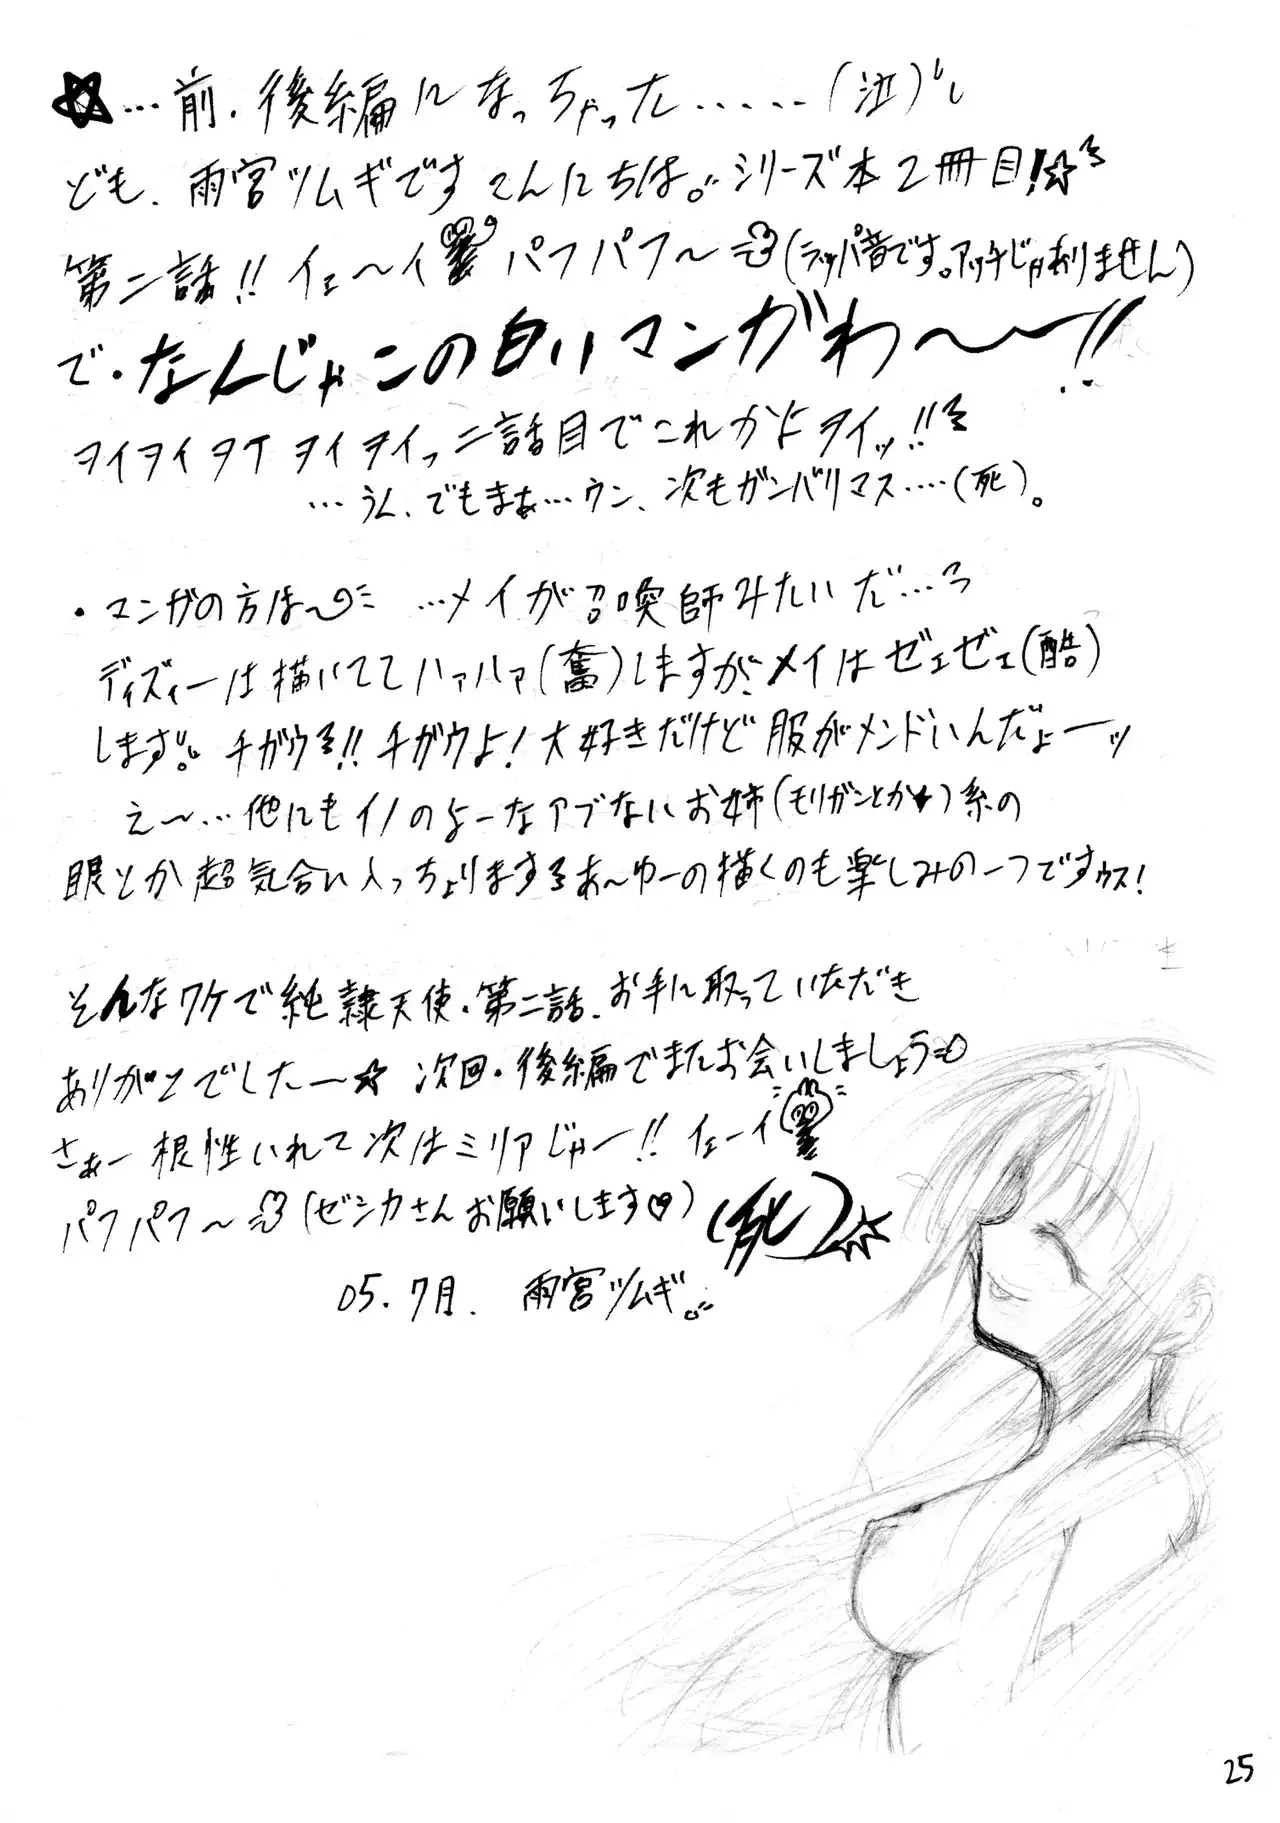 ☆…前.後編になっちゃった……(泣)
ども、雨宮ツムギです こんにちは。シリーズ本2冊目!☆
第二話!! イェ〜イ パフパフ〜(ラッパ音です。アッチじゃありません)
で・なんじゃこの白いマンがわ〜〜!!
ヲイヲイタイヲイヲイっ二話目でこれかよヲイッ!!
…うん、でもまぁ…ウン、次もガンバリマス‥‥(死)。
・マンガの方は〜 …メイが召喚師みたいだ…
ディズィーは描いててハァハァ(奮)しますが、メイはゼェゼェ(酷)
します。チガウ!! チガウよ!大好きだけど服がメンドいんだよーッ
え〜…他にもイノのよーなアブないお姉(モリガンとか★)系の
眼とか超気合い入っちょりますあ〜ゆーの描くのも楽しみの一つですゥス!
そんなワケで純隷天使・第二話、お手に取っていただき
ありがとでしたー☆ 次回・後編でまたお会いしましょう
さぁー根性いれて次はミリアじゃー!! イェーイ
パフパフ〜(ゼシカさんお願いします♡) (死)
05.7月. 雨宮ツムギ。
25